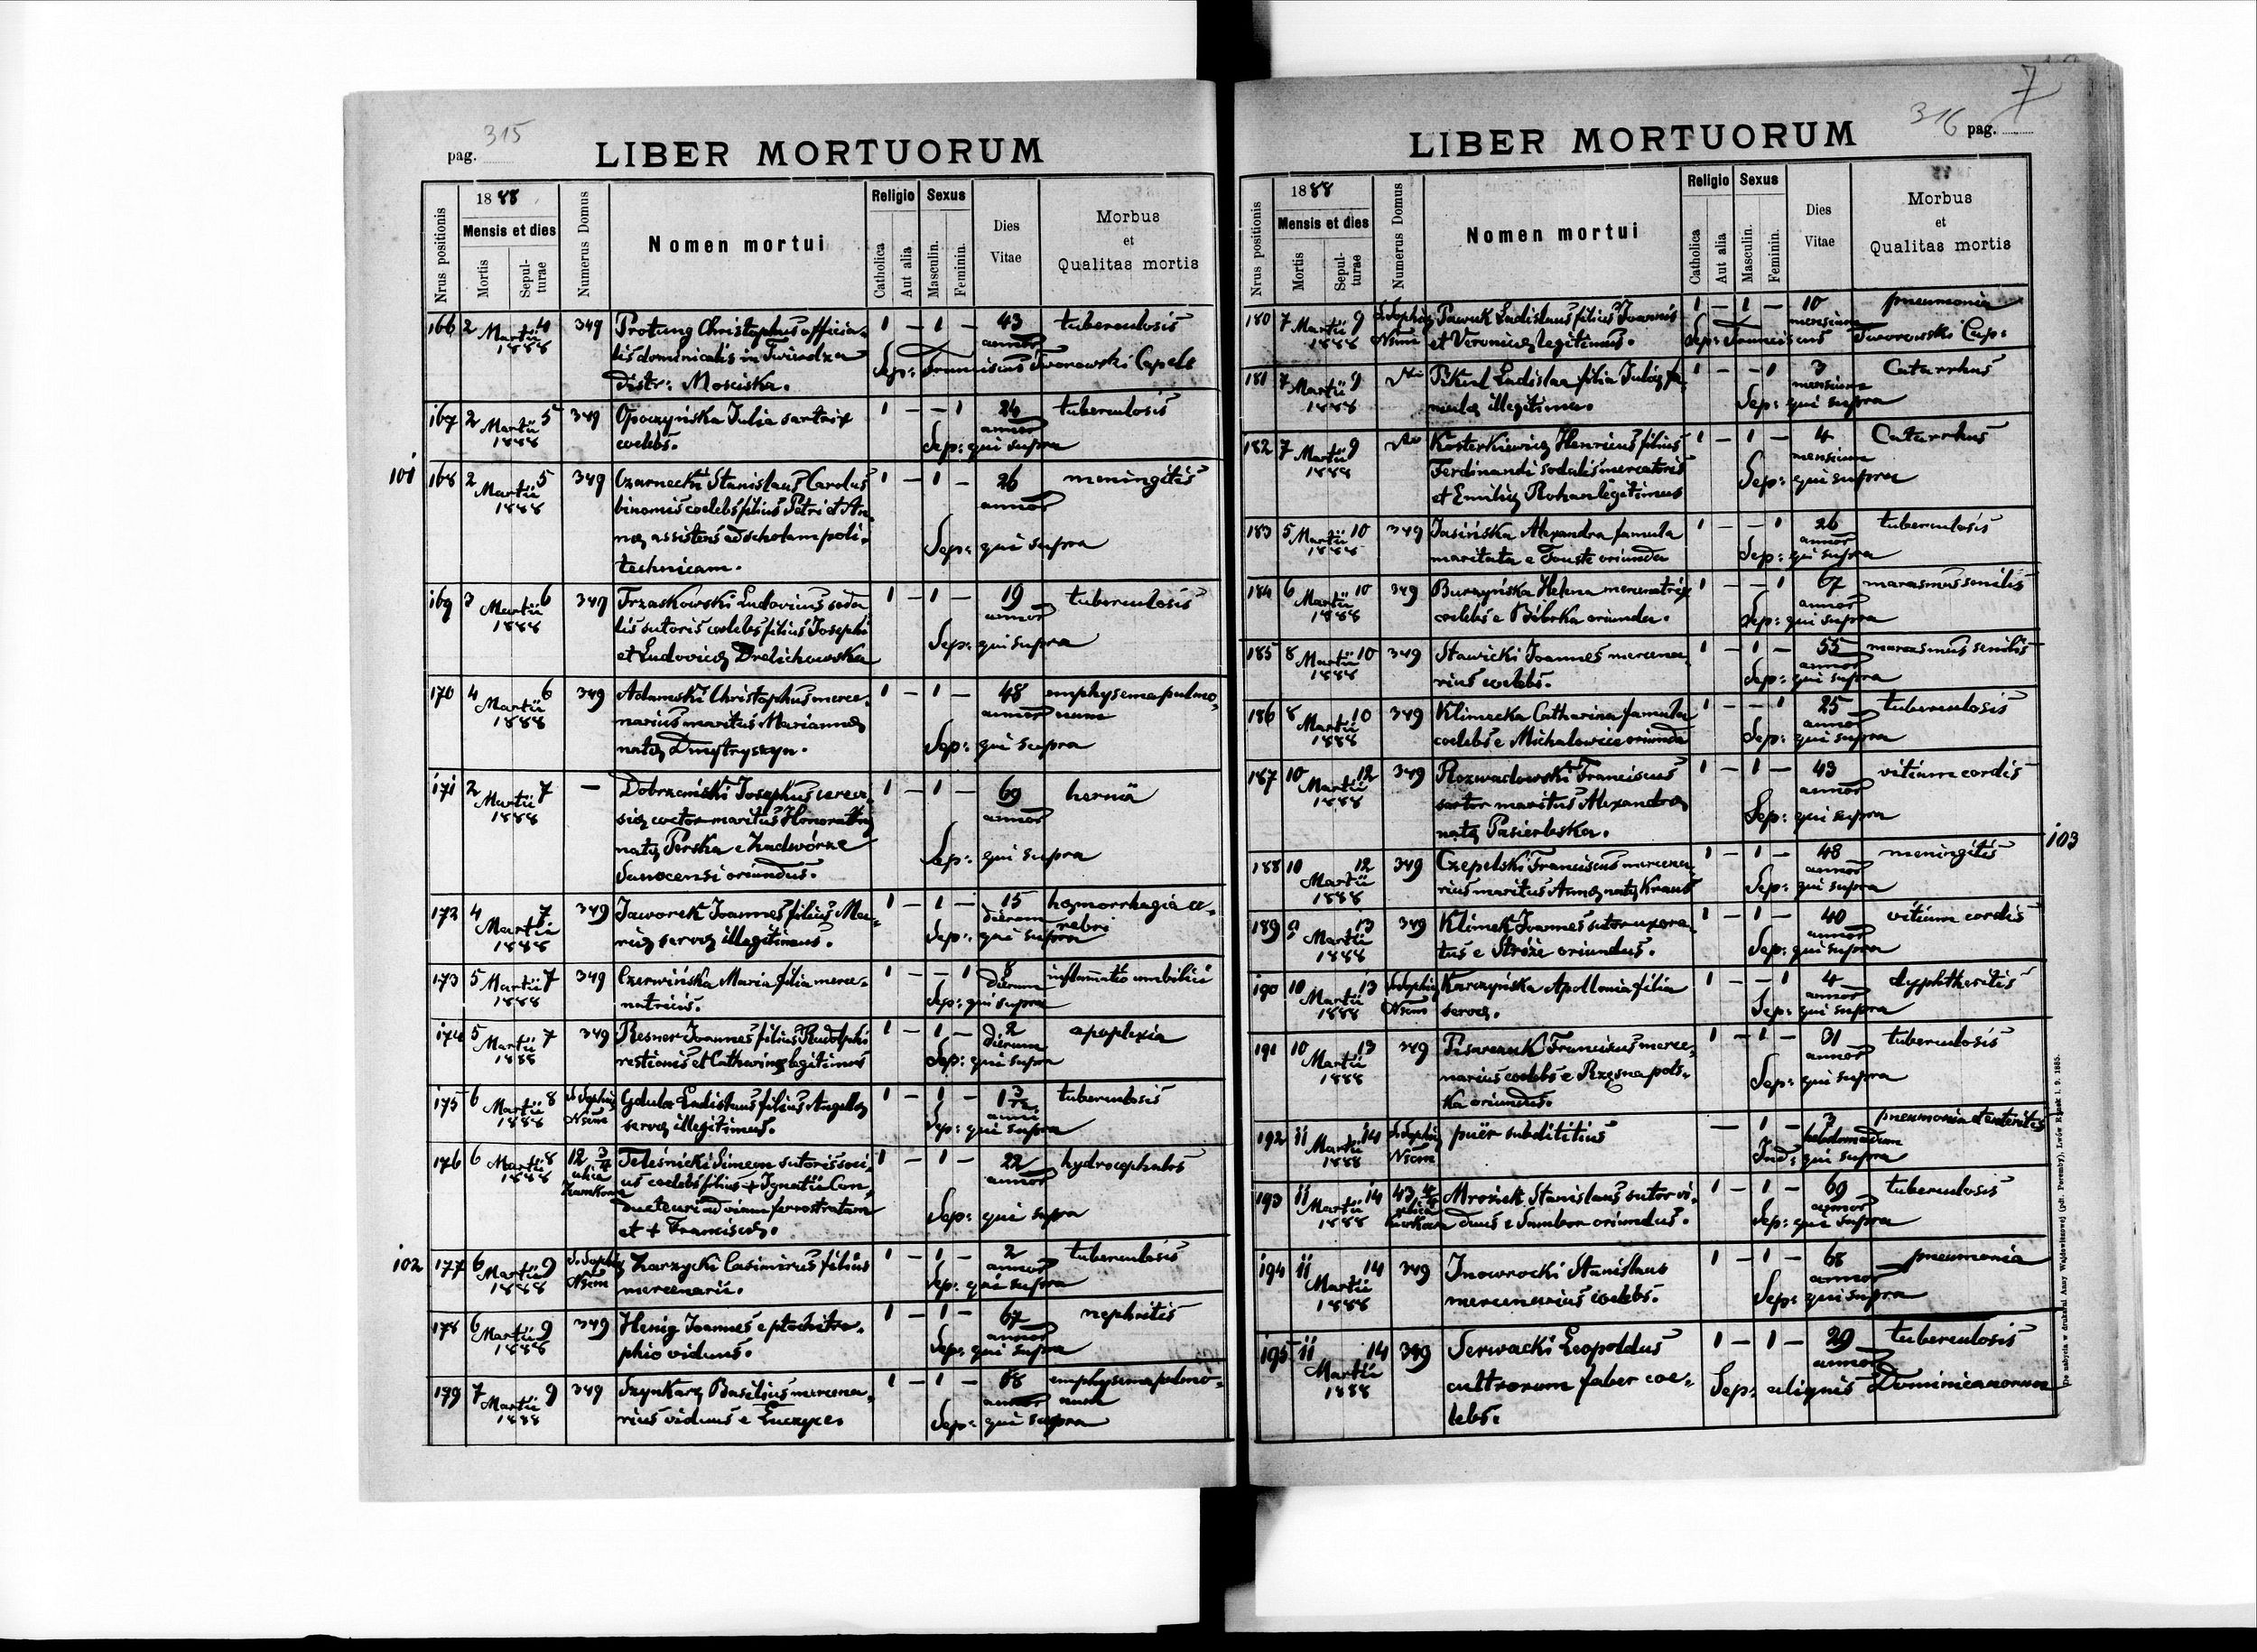 315
pag.
LIBER MORTUORUM
Nrus positionis
1888
Mensis et dies
Mortis
Sepul-
turae
Numerus Domus
Nomen mortui
Religio
Catholica
Aut alia
Sexus
Masculin.
Feminin.
Dies
Vitae
Morbus
et
Qualitas mortis
166 2 Martii 4 1888 349 Protung Christophus officia- 1 – 1 – 43 tuberculosis
lis dominicalis in Twierdza annor
distr: Mosciska. Sep: Franciscus Tworowski Capels
167 2 Martii 5 1888 349 Opoczyńska Julia sartrix 1 – – 1 24 tuberculosis
coelebs. annor Sep: qui supra
101
168 2 Martii 5 1888 349 Czarnecki Stanislaus Carolus 1 – 1 – 26 meningitis
binomis coelebs filius Petri et An- annor
nae assistens ad scholam poli- Sep: qui supra
technicam.
169 3 Martii 6 1888 349 Trzaskowski Ludovicus soda 1 – 1 – 19 tuberculosis
lis sutoris coelebs filius Josephi annor
et Ludovicae Drelichowska Sep: qui supra
170 4 Martii 6 1888 349 Adamski Christophus merce- 1 – 1 – 48 emphysema pulmo-
narius maritus Mariannae annor num
natae Dmytryszyn. Sep: qui supra
171 2 Martii 7 1888 – Dobrzański Josephus cerevi- 1 – 1 – 69 hernia
siae coctor maritus Honoratae annor
natae Perska e Zadwórze Sep: qui supra
Sanocensi oriundus.
172 4 Martii 7 1888 349 Jaworek Joannes filius Ma- 1 – 1 – 15 haemorrhagia ce-
riae servae illegitimus. dierum rebri Sep: qui supra
173 5 Martii 7 1888 349 Czerwińska Maria filia merce- 1 – – 1 8 inflamatio umbilici
natricis. dierum Sep: qui supra
174 5 Martii 7 1888 349 Resner Joannes filius Rudolphi 1 – 1 – 2 apoplexia
restionis et Catharinae legitimus dierum Sep: qui supra
175 6 Martii 8 1888 S. Sophiae Gdula Ladislaus filius Angelae 1 – 1 – 1 3/12 tuberculosis
servae illegitimus. anni Sep: qui supra
176 6 Martii 8 1888 12 3/4 ulica Teleśnicki Simeon sutoris soci- 1 – 1 – 22 hydrocephalus
us coelebs filius + Ignatii Con- annor
ducteuri ad viam ferrostratam Sep: qui supra
et + Franciscae.
102
177 6 Martii 9 1888 S. Sophiae Zarzycki Casimirus filius 1 – 1 – 2 tuberculosis
mercenarii. annor Sep: qui supra
178 6 Martii 9 1888 349 Henig Joannes e ptochitro- 1 – 1 – 67 nephritis
phio viduus. annor Sep: qui supra
179 7 Martii 9 1888 349 Szynkarz Basilius mercena- 1 – 1 – 68 emphysema pulmo-
rius viduus e Luczyce. annor num Sep: qui supra
7
316 pag.
LIBER MORTUORUM
Nrus positionis
1888
Mensis et dies
Mortis
Sepul-
turae
Numerus Domus
Nomen mortui
Religio
Catholica
Aut alia
Sexus
Masculin.
Feminin.
Dies
Vitae
Morbus
et
Qualitas mortis
180 7 Martii 9 1888 S. Sophiae Pawuk Ladislaus filius Joannis 1 – 1 – 10 pneumonia
et Veronicae legitimus. mensium Sep: Franciscus Tworowski Cap:
181 7 Martii 9 1888 Pikul Ladislaa filia Juliae fa- 1 – – 1 3 Catarrhus
mulae illegitima. mensium Sep: qui supra
182 7 Martii 9 1888 Kosterkiewicz Henricus filius 1 – 1 – 4 Catarrhus
Ferdinandi sodalis mercatoris mensium
et Emiliae Rohan legitimus Sep: qui supra
183 5 Martii 10 1888 349 Jasińska Alexandra famula 1 – – 1 26 tuberculosis
maritata e Touste oriunda annor Sep: qui supra
184 6 Martii 10 1888 349 Burzyńska Helena mercenatrix 1 – – 1 67 marasmus senilis
coelebs e Bóbrka oriunda. annor Sep: qui supra
185 8 Martii 10 1888 349 Stawicki Joannes mercena- 1 – 1 – 55 marasmus senilis
rius coelebs. annor Sep: qui supra
186 8 Martii 10 1888 349 Klimecka Catharina famula 1 – – 1 25 tuberculosis
coelebs e Michalowice oriunda annor Sep: qui supra
187 10 Martii 12 1888 349 Rozwadowski Franciscus 1 – 1 – 43 vitium cordis
sartor maritus Alexandrae annor
natae Pasierbska. Sep: qui supra
103
188 10 Martii 12 1888 349 Czepelski Franciscus mercena- 1 – 1 – 48 meningitis
rius maritus Annae natae Kraus annor Sep: qui supra
189 9 Martii 13 1888 349 Klimek Joannes sutor uxora- 1 – 1 – 40 vitium cordis
tus e Stróże oriundus. annor Sep: qui supra
190 10 Martii 13 1888 S. Sophiae Karczyńska Apollonia filia 1 – – 1 4 dyphtheritis
servae. annor Sep: qui supra
191 10 Martii 13 1888 349 Pisarczuk Franciscus merce- 1 – 1 – 31 tuberculosis
narius coelebs e Rzęsna pols- annor
ka oriundus. Sep: qui supra
192 11 Martii 14 1888 S. Sophiae puer subdititius – 1 – 3 pneumonia et enteritis
hebdomadum Ind: qui supra
193 11 Martii 14 1888 43 4/4 ulica Mroziek Stanislaus sutor vi- 1 – 1 – 69 tuberculosis
duus e Sambor oriundus. annor Sep: qui supra
194 11 Martii 14 1888 349 Inowrocki Stanislaus 1 – 1 – 68 pneumonia
mercenarius coelebs. annor Sep: qui supra
195 11 Martii 14 1888 349 Serwacki Leopoldus 1 – 1 – 29 tuberculosis
cultrorum faber coe- annor Sep: alignis Dominicanorum
lebs.